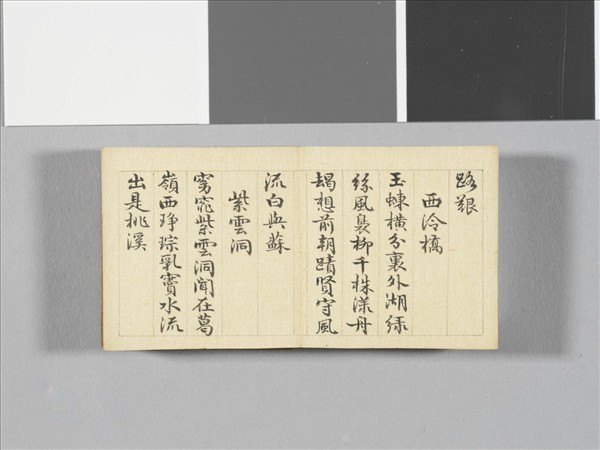 路
西泠橋
玉蝀橫分裏外湖綠
絲風裊柳千株漾舟
朅想前朝蹟賢守風
流白與蘇
紫雲洞
窈窕紫雲洞聞在葛
嶺西琤琮乳竇水流
出是桃溪